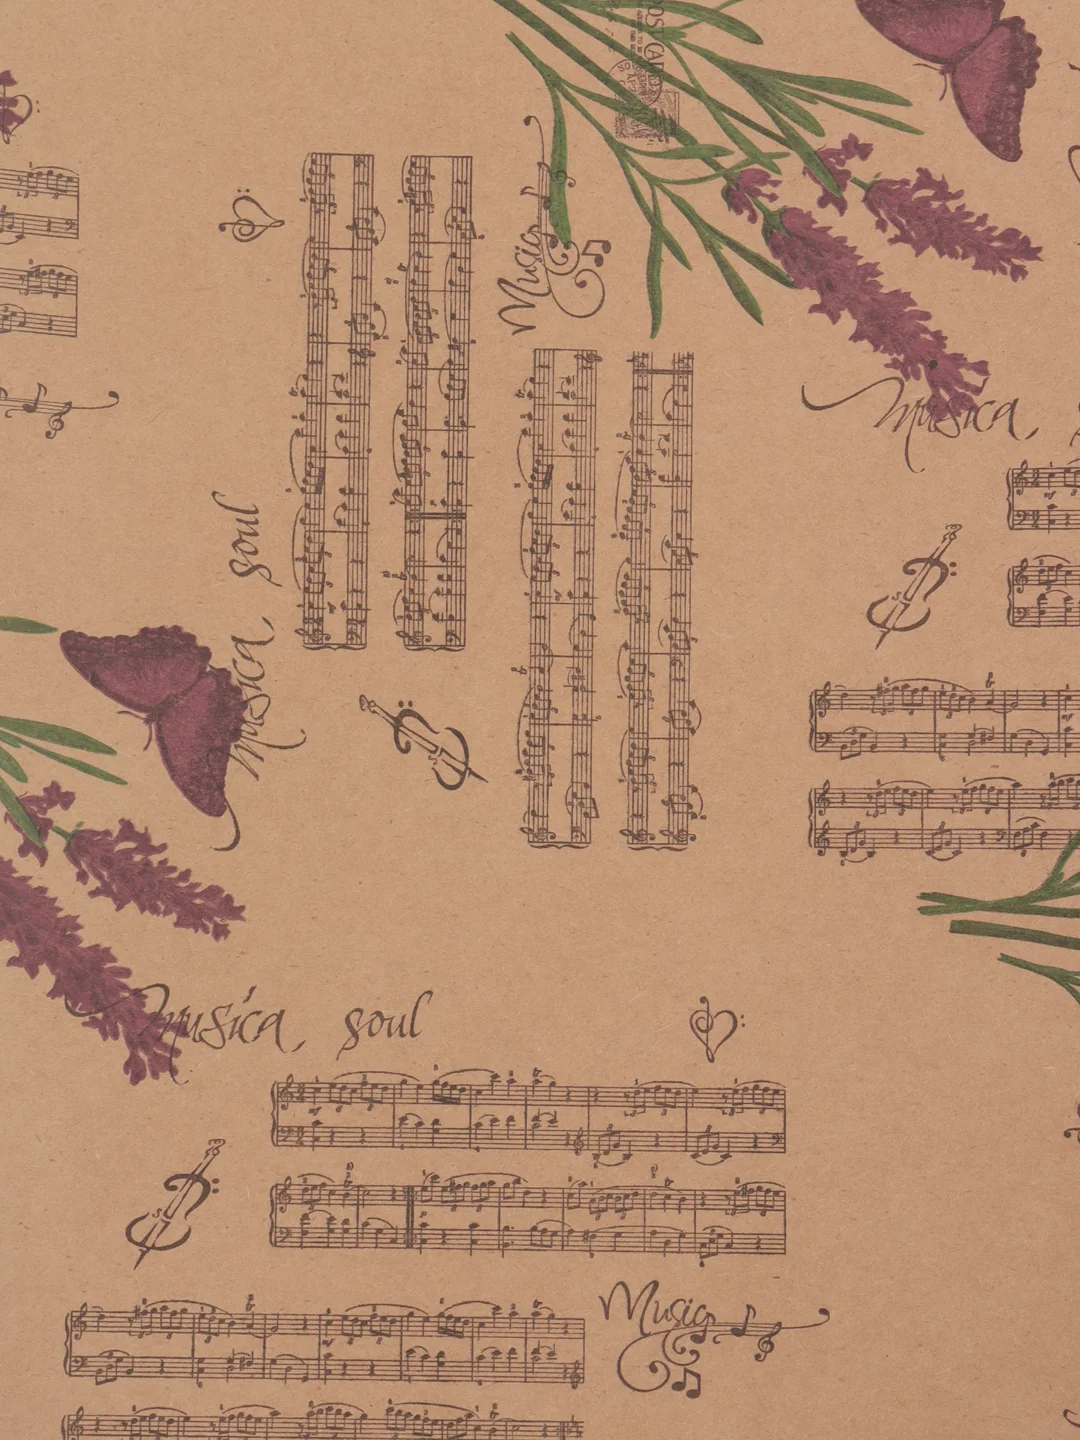 POST CARD
Music
musica,
soul
musica,
musica, soul
Music